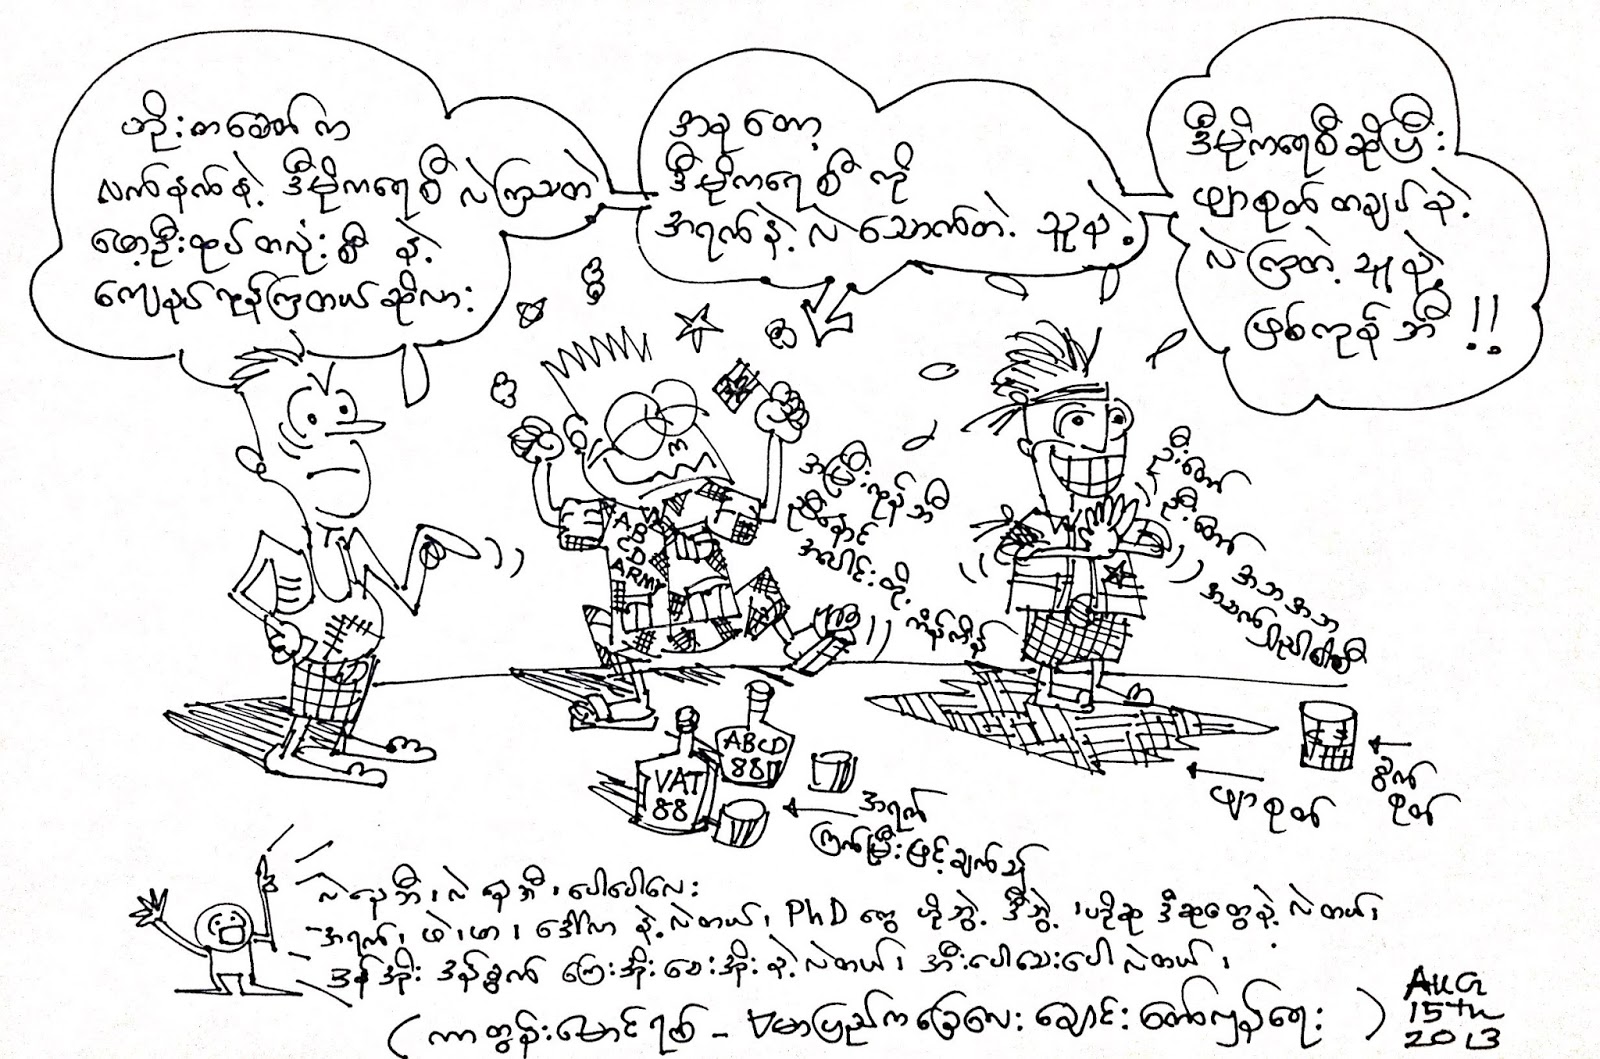 ဟိုးတခေတ်က
လက်နက်နဲ့ ဒီမိုကရေစီ လဲကြသတဲ့
ဖော့ဦးထုပ်တလုံးစီ နဲ့
ကျေနပ်ကုန်ကြတယ်ဆိုလား
အခုတော့
ဒီမိုကရေစီ ကို
အရက်နဲ့ လဲသောက်တဲ့ သူနဲ့
ဒီမိုကရေစီဆိုပြီး
ဖျာစုတ်တချပ်နဲ့
လဲကြတဲ့ သူနဲ့
ဖြစ်ကုန်ဘီ !!
ABCD
ARMY
အငြိမ်းကုန်ဘီ
ညီနောင်
အပေါင်းတို့
အဘ အဘ
VAT
88
ABCD
88
အရက်
ကြက်မြီးဖြင့်ချက်သည်
ဖျာစုတ်
ခွက်
စုတ်
လဲနေဘီ၊ လဲနေဘီ၊ ပေါပေါလေး
အရက်၊ ဖဲ၊ ဖာ၊ ဒေါ်လာ နဲ့ လဲတယ်၊ PhD တွေ ဟိုဘွဲ့ ဒီဘွဲ့၊ ဟိုဆု ဒီဆုတွေနဲ့ လဲတယ်၊
ဒန်အိုး ဒန်ခွက် ကြေးအိုး မေးအိုး နဲ့ လဲတယ်၊ အီးပေါသေးပေါ လဲတယ်၊
( ကာတွန်းမောင်ရစ် – ဗမာပြည်ကခြေလေးချောင်းတော်လှန်ရေး )
AUG
15TH
2013